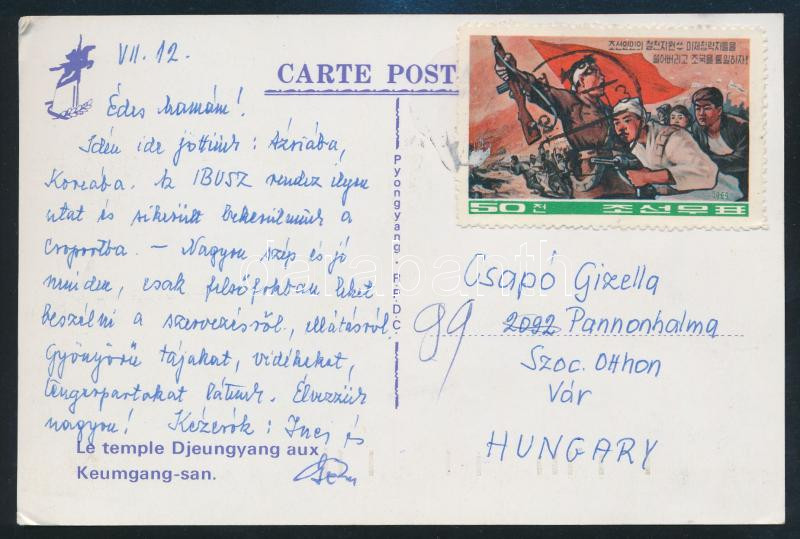 VII. 12.
CARTE POST
Édes Mamám!
Idén ide jöttünk: Ázsiába,
Koreába. Az IBUSZ rendez ilyen
utat és sikerült bekerülnünk a
csoportba. — Nagyon szép és jó
minden, csak felsőfokban lehet
beszélni a szervezésről, ellátásról.
Gyönyörű tájakat, vidékeket,
tengerpartokat látunk. Élvezzük
nagyon! Kézcsók: Inci és
Le temple Djeungyang aux
Keumgang-san.
Pyongyang · R.P.D.C.
조선인민의 철천지원쑤 미제침략자들을
쓸어버리고 조국을 통일하자!
1969
50전 조선우표
Csapó Gizella
99
2092 Pannonhalma
Szoc. Otthon
Vár
HUNGARY
darabanth